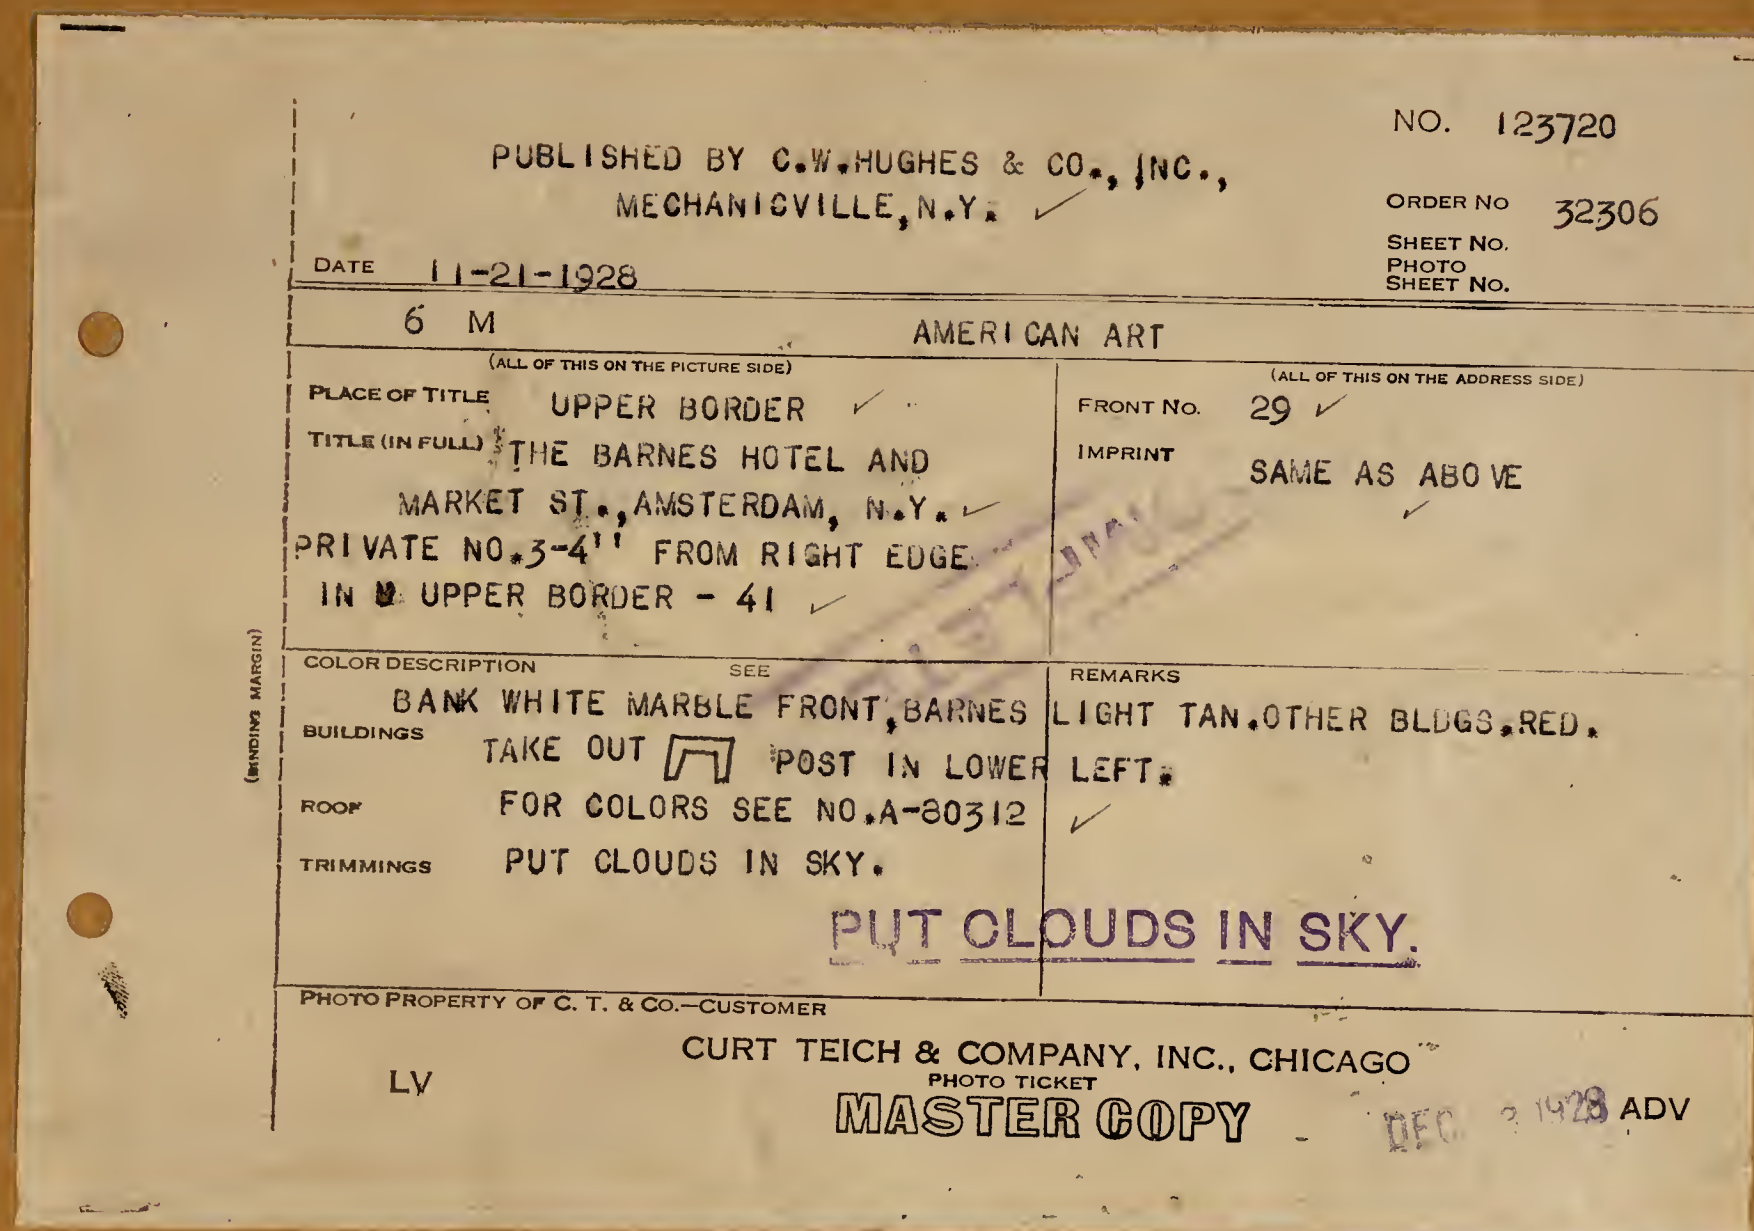 NO. 123720
PUBLISHED BY C.W.HUGHES & CO., INC.,
MECHANICVILLE, N.Y.
ORDER NO 32306
SHEET NO.
PHOTO
SHEET NO.
DATE 11-21-1928
6 M AMERICAN ART
(ALL OF THIS ON THE PICTURE SIDE)
(ALL OF THIS ON THE ADDRESS SIDE)
PLACE OF TITLE UPPER BORDER
FRONT NO. 29
TITLE (IN FULL) THE BARNES HOTEL AND
MARKET ST., AMSTERDAM, N.Y.
PRIVATE NO.3-4'' FROM RIGHT EDGE
IN UPPER BORDER - 41
IMPRINT SAME AS ABOVE
(BINDING MARGIN)
COLOR DESCRIPTION SEE REMARKS
BANK WHITE MARBLE FRONT, BARNES LIGHT TAN.OTHER BLDGS.RED.
BUILDINGS TAKE OUT POST IN LOWER LEFT.
ROOF FOR COLORS SEE NO.A-80312
TRIMMINGS PUT CLOUDS IN SKY.
PUT CLOUDS IN SKY.
PHOTO PROPERTY OF C. T. & CO.—CUSTOMER
CURT TEICH & COMPANY, INC., CHICAGO
PHOTO TICKET
LV
MASTER COPY
DEC 1928 ADV